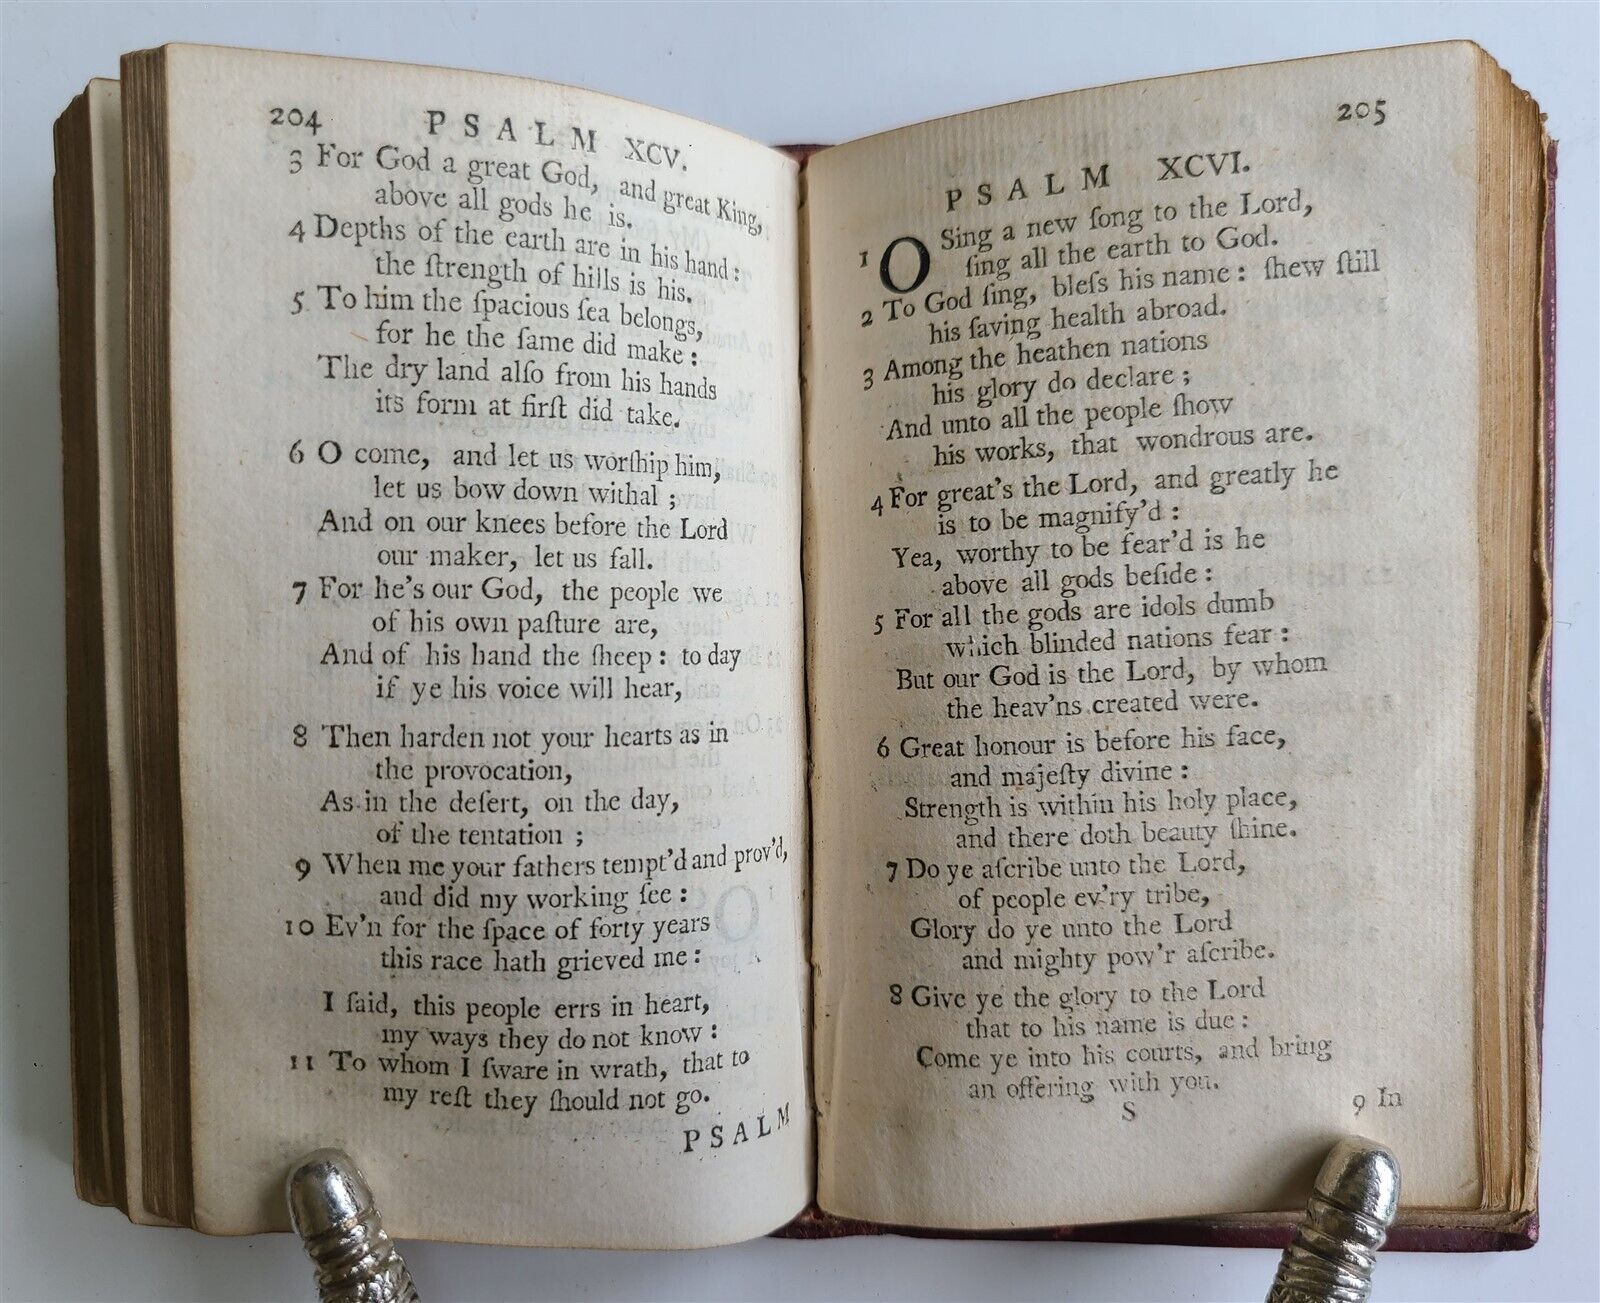 204
PSALM XCV.
3 For God a great God, and great King,
above all gods he is.
4 Depths of the earth are in his hand:
the ſtrength of hills is his.
5 To him the ſpacious ſea belongs,
for he the ſame did make:
The dry land alſo from his hands
its form at firſt did take.
6 O come, and let us worſhip him,
let us bow down withal;
And on our knees before the Lord
our maker, let us fall.
7 For he's our God, the people we
of his own paſture are,
And of his hand the ſheep: to day
if ye his voice will hear,
8 Then harden not your hearts as in
the provocation,
As in the deſert, on the day,
of the tentation;
9 When me your fathers tempt'd and prov'd,
and did my working ſee:
10 Ev'n for the ſpace of forty years
this race hath grieved me:
I ſaid, this people errs in heart,
my ways they do not know:
11 To whom I ſware in wrath, that to
my reſt they ſhould not go.
PSALM
205
PSALM XCVI.
1 O Sing a new ſong to the Lord,
ſing all the earth to God.
2 To God ſing, bleſs his name: ſhew ſtill
his ſaving health abroad.
3 Among the heathen nations
his glory do declare;
And unto all the people ſhow
his works, that wondrous are.
4 For great's the Lord, and greatly he
is to be magnify'd:
Yea, worthy to be fear'd is he
above all gods beſide:
5 For all the gods are idols dumb
which blinded nations fear:
But our God is the Lord, by whom
the heav'ns created were.
6 Great honour is before his face,
and majeſty divine:
Strength is within his holy place,
and there doth beauty ſhine.
7 Do ye aſcribe unto the Lord,
of people ev'ry tribe,
Glory do ye unto the Lord
and mighty pow'r aſcribe.
8 Give ye the glory to the Lord
that to his name is due:
Come ye into his courts, and bring
an offering with you.
S
9 In